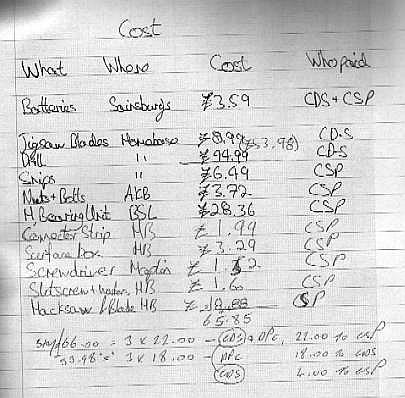 Cost
What Where Cost Who paid
Batteries Sainsburys £3.59 CDS + CSP
Jigsaw Blades Homebase £8.99 (£53.98) CDS
Drill " £44.99 CDS
Snips " £6.49 CSP
Nuts + Bolts AKB £3.72 CSP
M Bearing Unit BSL £28.36 CSP
Connector Strip HB £1.99 CSP
Surface Box HB £3.29 CSP
Screwdriver Maplin £ CSP
Slotscrew + HB £1.6 CSP
Hacksaw + Blade HB £ CSP
65.85
66.00 = 3 x 22.00 - CDS + DPC, 22.00 to CSP
53.98 3 x 18.00 - DPC 18.00 to CDS
CDS 4.00 to CSP